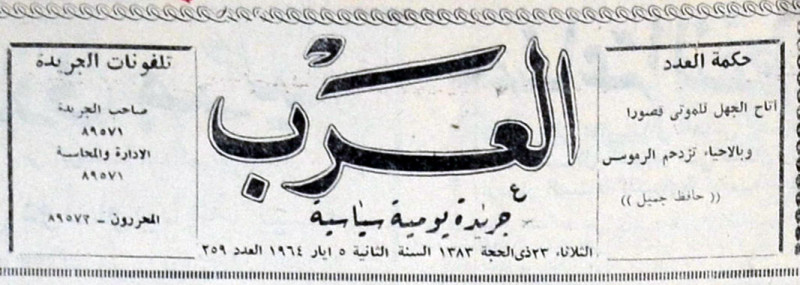 حكمة العدد
اتاح الجهل للموتى قصورا
وبالاحياء تزدحم الرموس
(( حافظ جميل ))
العرب
جريدة يومية سياسية
الثلاثاء ٢٣ ذي الحجة ١٣٨٣ السنة الثانية ٥ ايار ١٩٦٤ العدد ٢٥٩
تلفونات الجريدة
صاحب الجريدة
٨٩٥٧١
الادارة والمحاسبة
٨٩٥٧١
المحررون - ٨٩٥٧٢